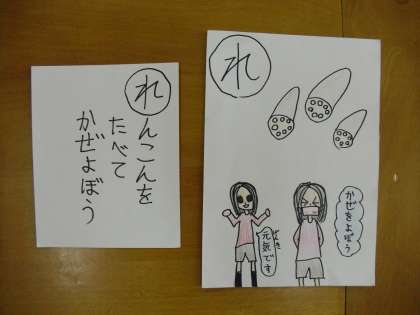 れんこんを
たべて
かぜよぼう
れ
かぜをよぼう
げんき
元気です